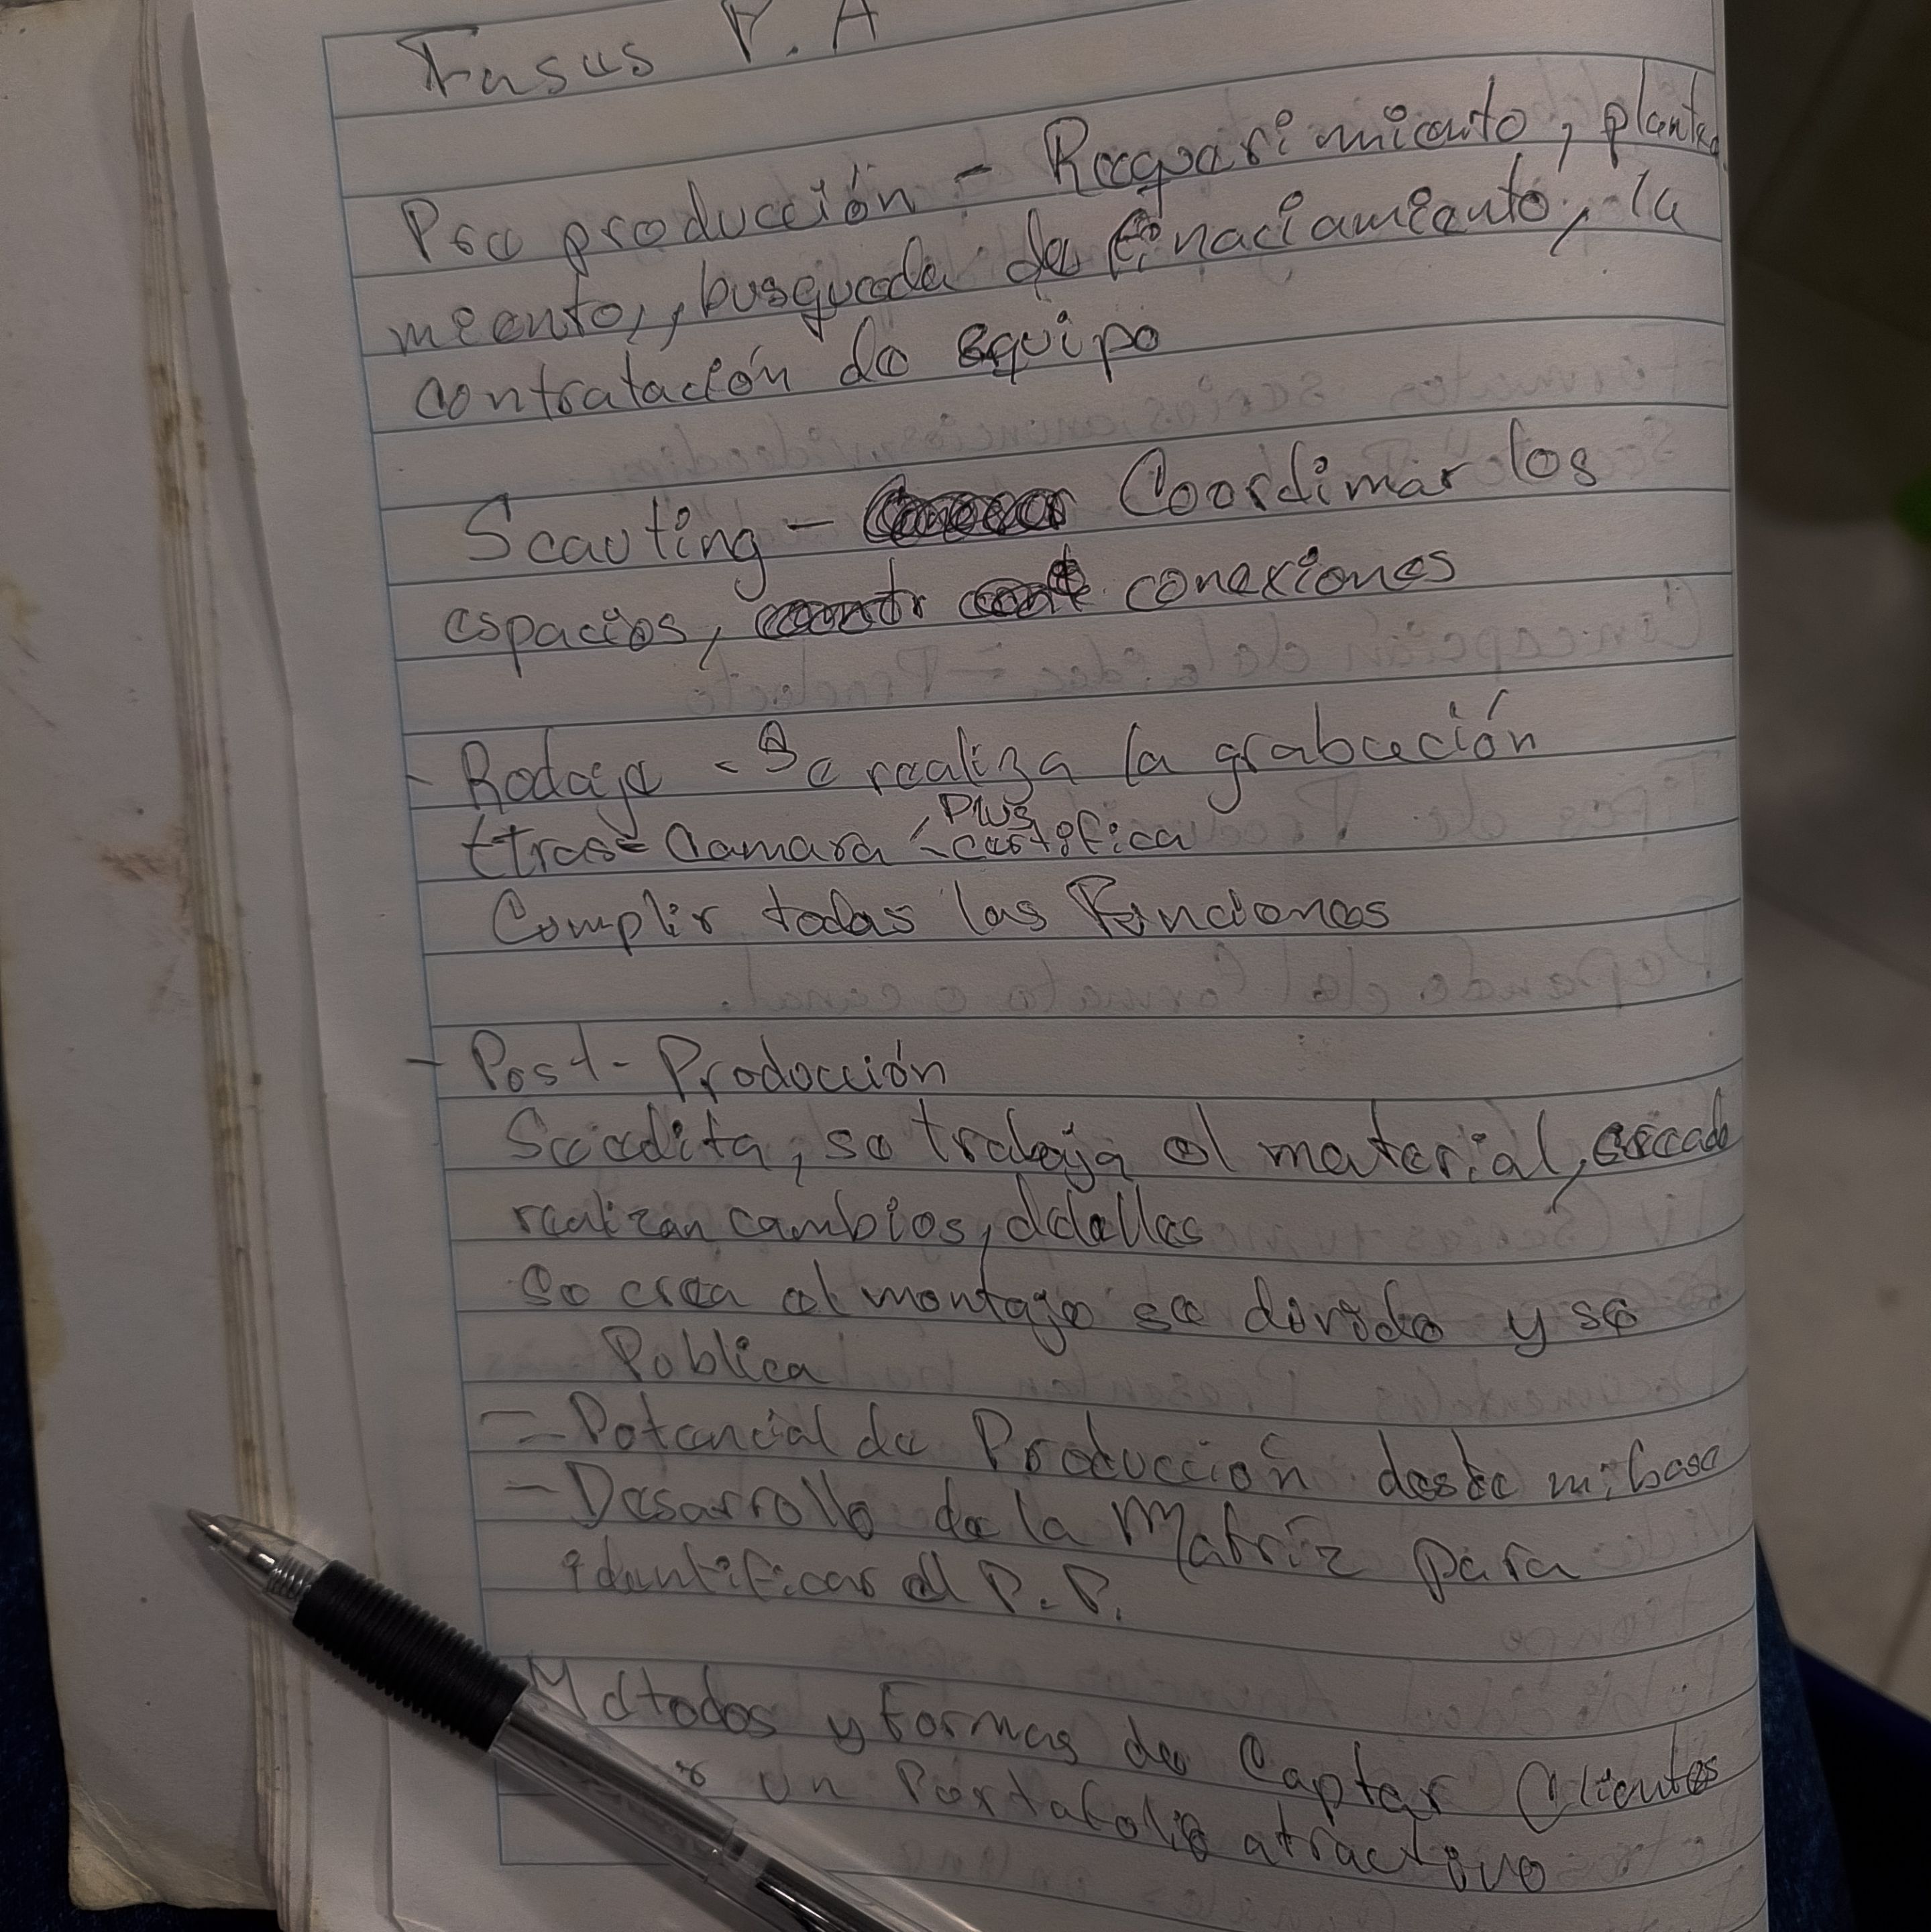 Fases P. A
Pre producción - Requerimiento, plantea
miento, busqueda de finaciamiento, la
contratación de equipo
Scauting - Coordinar los
espacios, conexiones
- Rodaje - Se realiza la grabación
tras camara - Plus
Cumplir todas las Funciones
- Post - Producción
Se edita, se trabaja el material,
realizan cambios, detalles
Se crea el montaje se divide y se
Publica
- Potencial de Producción desde mi base
- Desarrollo de la Matriz para
identificar el P. P.
Métodos y Formas de Captar Clientes
un Portafolio atractivo